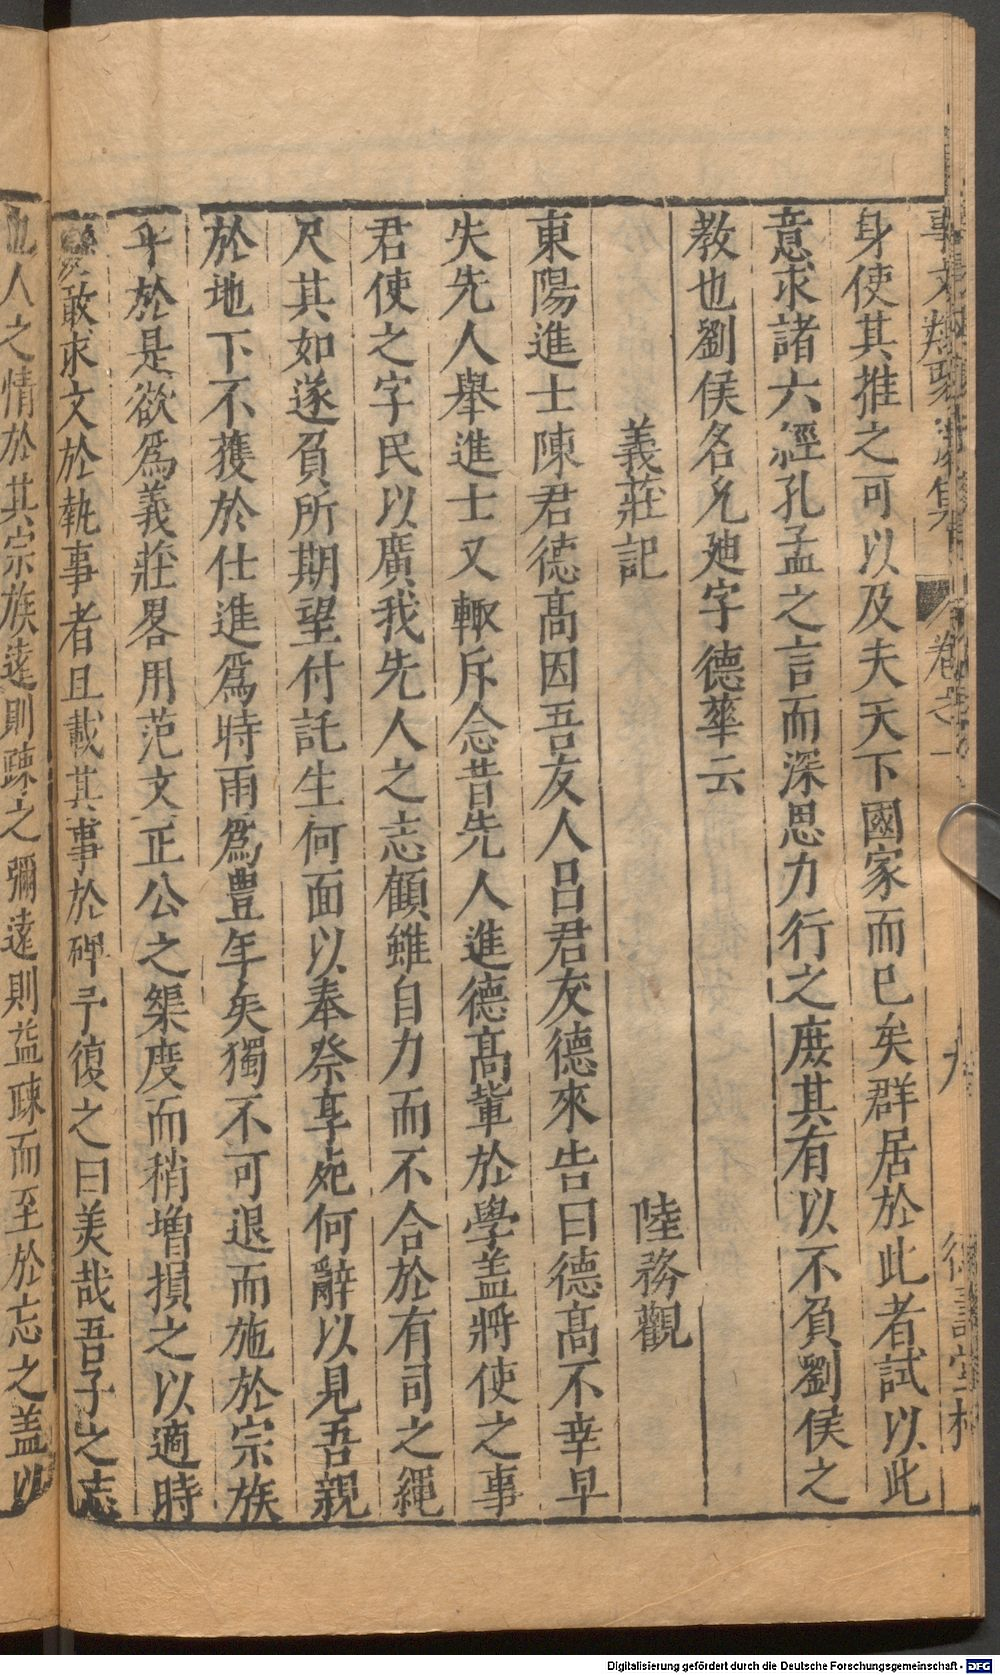 身使其推之可以及夫天下國家而已矣群居於此者試以此
意求諸六經孔孟之言而深思力行之庻其有以不負劉侯之
教也劉侯名允廸字德華云
義莊記 陸務觀
東陽進士陳君德高因吾友人吕君友德來告曰德高不幸早
失先人舉進士又輙斥念昔先人進德高軰於學盖將使之事
君使之字民以廣我先人之志顧雖自力而不合於有司之繩
尺其如遂負所期望付託生何面以奉祭享死何辭以見吾親
於地下不獲於仕進爲時雨爲豊年矣獨不可退而施於宗族
乎於是欲爲義莊畧用范文正公之榘度而稍增損之以適時
敢求文於執事者且載其事於碑予復之曰美哉吾子之志
也人之情於其宗族遠則踈之彌遠則益踈而至於忘之盖以
卷之一
九
Digitalisierung gefördert durch die Deutsche Forschungsgemeinschaft - DFG